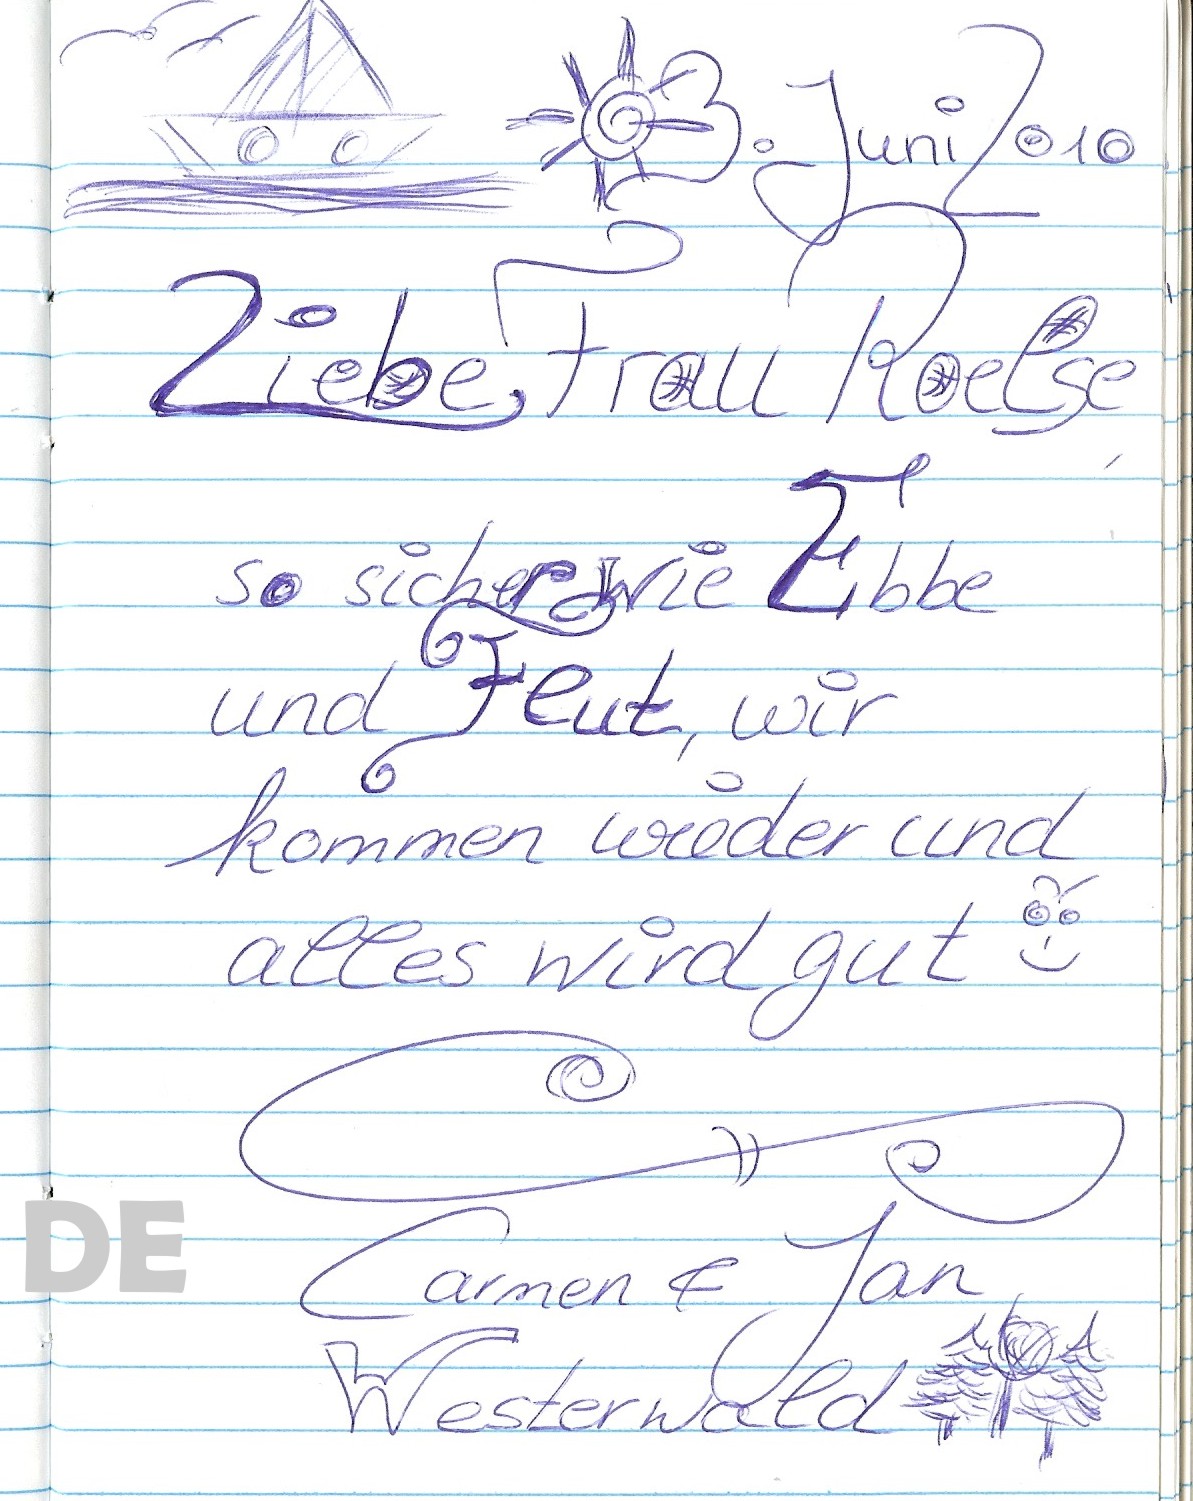 3. Juni 2010
Liebe Frau Roelse,
so sicher wie Ebbe
und Flut, wir
kommen wieder und
alles wird gut
Carmen & Jan
Westerwald
DE